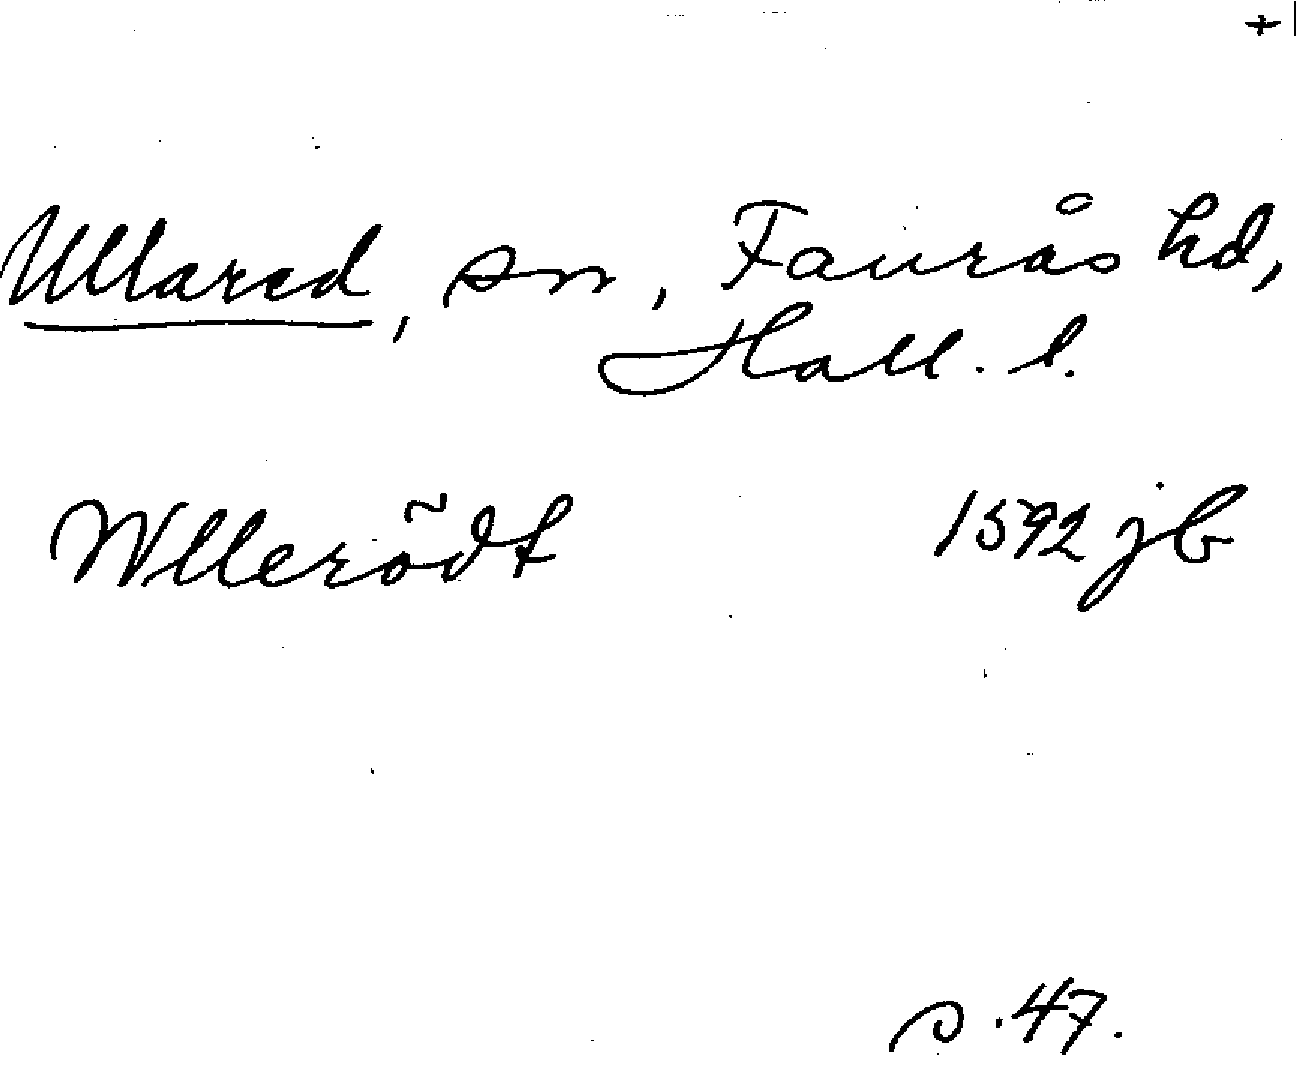 +
Ullared, sn, Faurås hd,
Hall. l.
Wllerödt 1592 jb
s. 47.